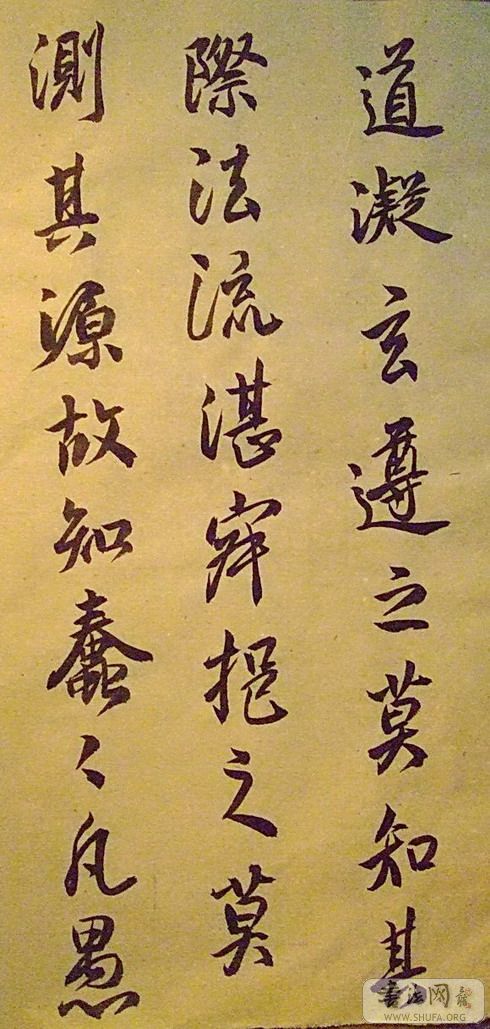 道凝玄遵之莫知其
際法流湛寂挹之莫
測其源故知蠢々凡愚
書法网
WWW.SHUFA.ORG